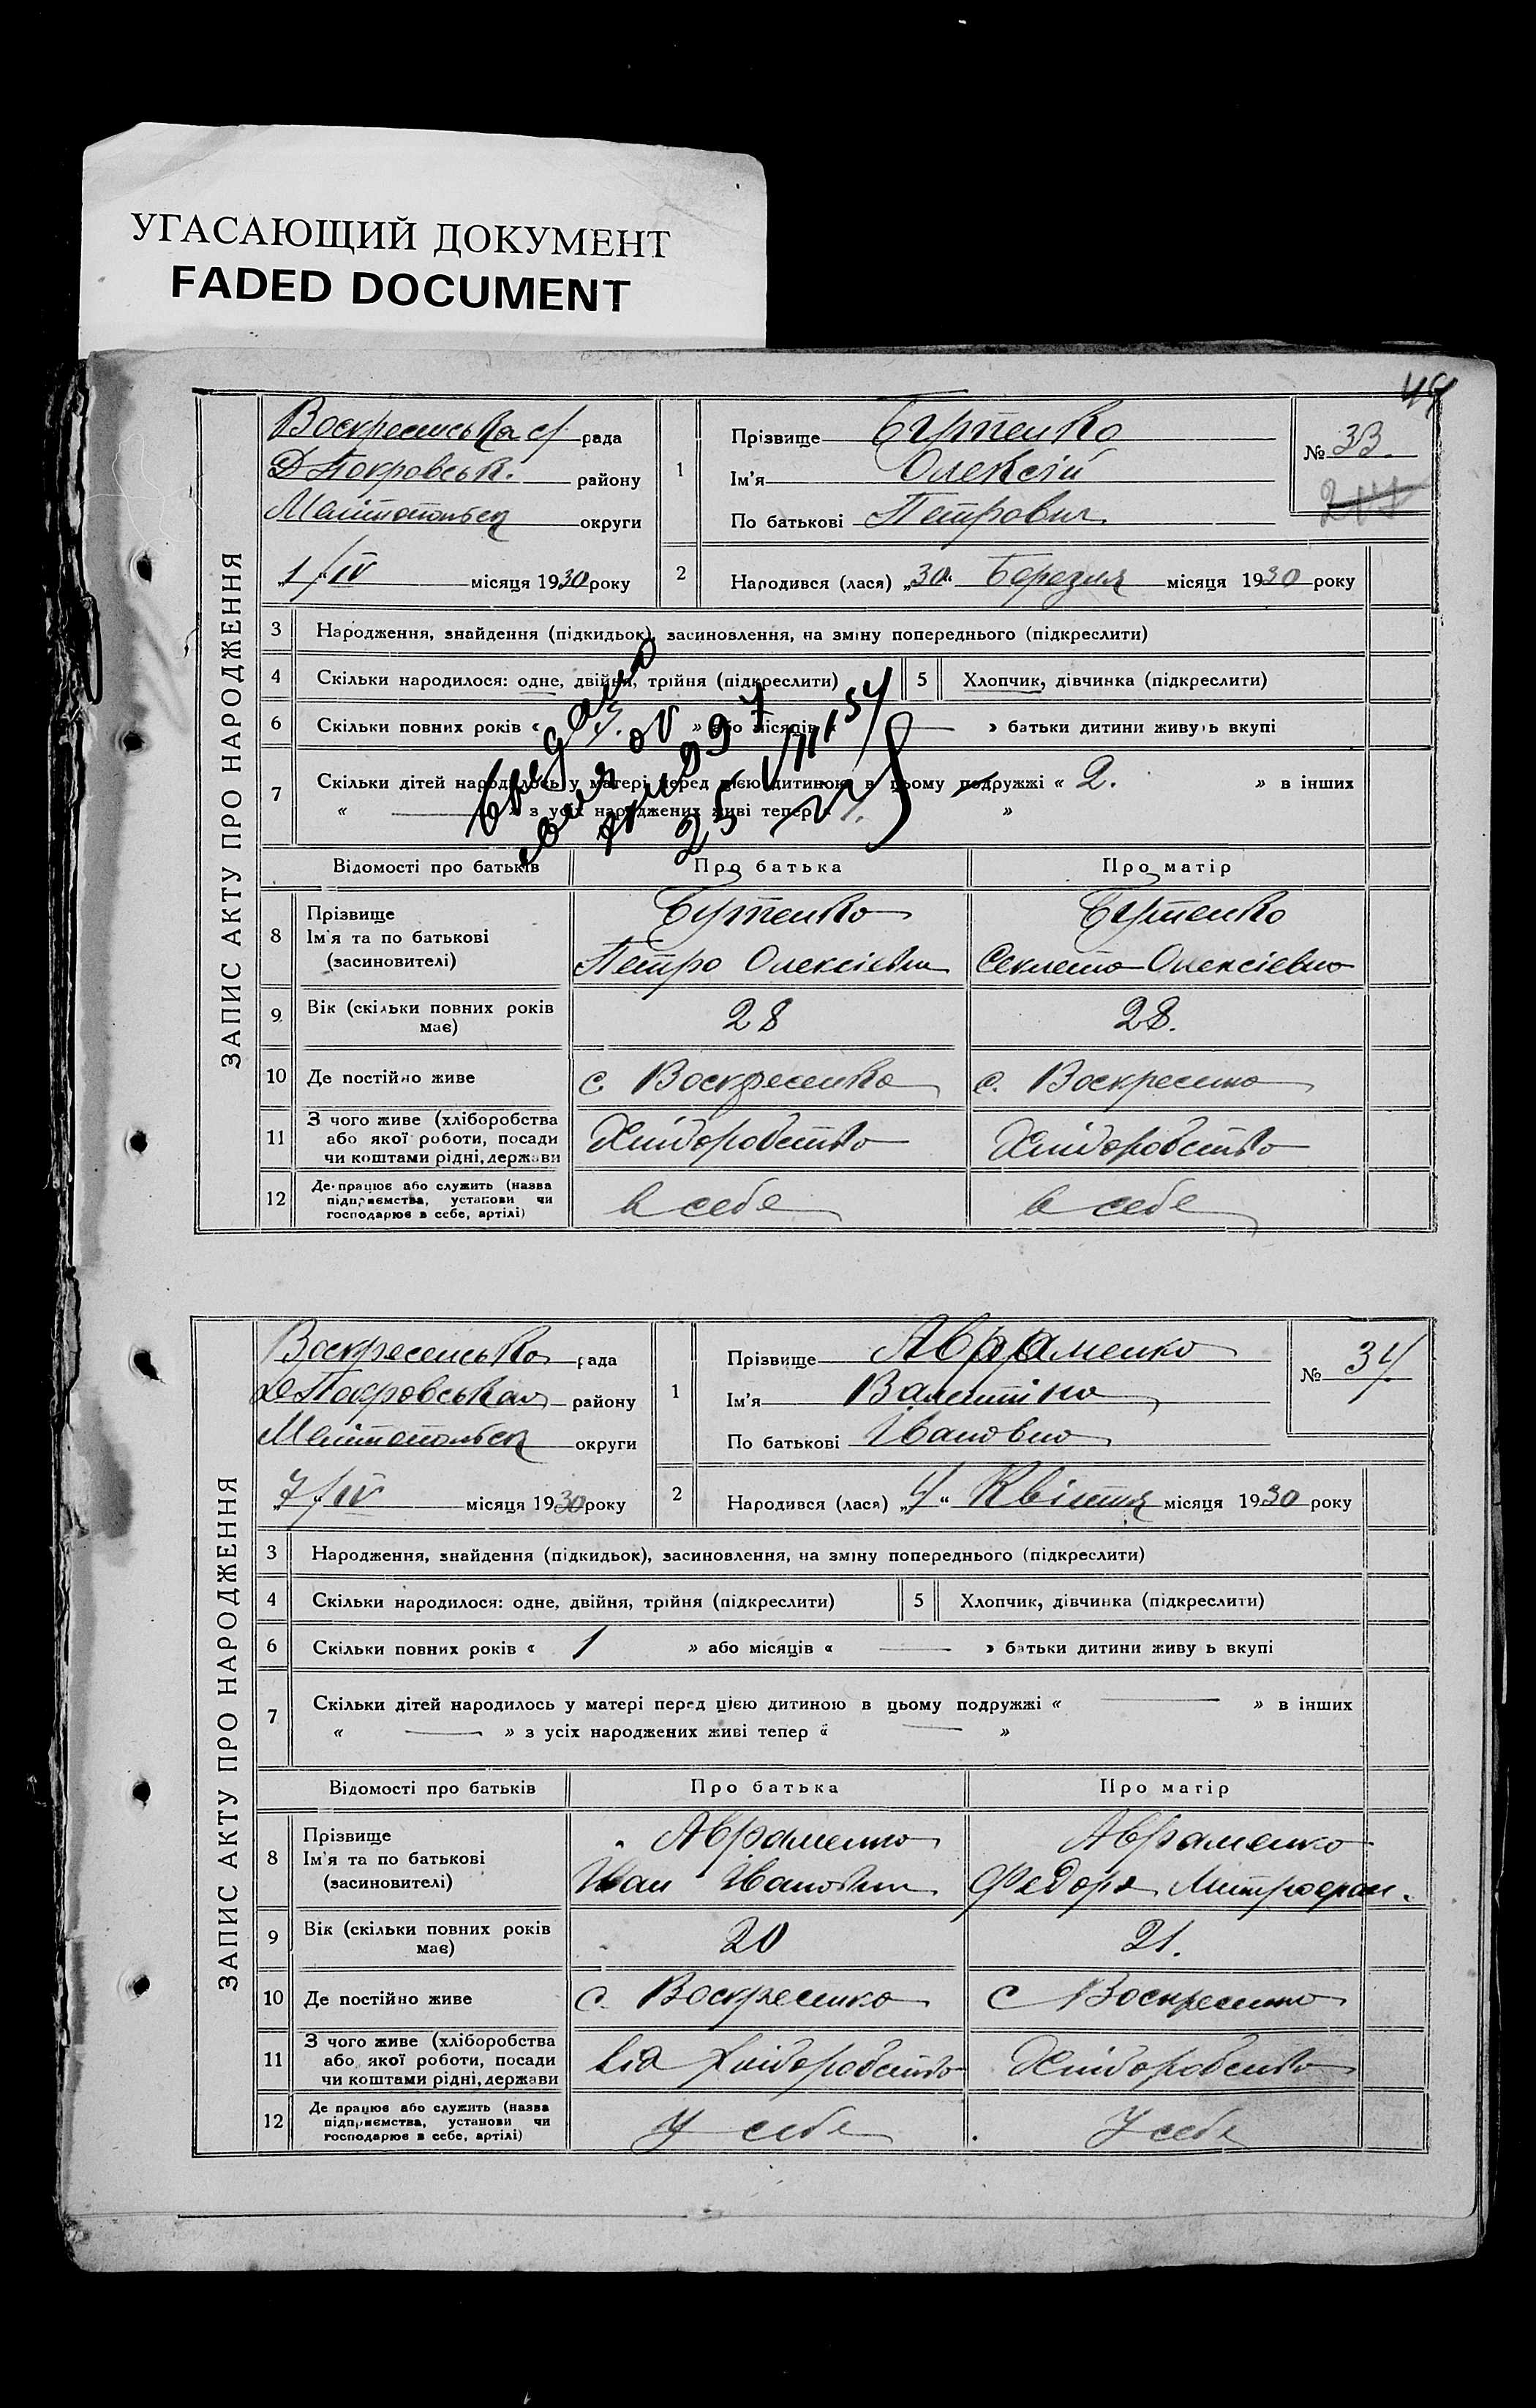 УГАСАЮЩИЙ ДОКУМЕНТ
FADED DOCUMENT
ЗАПИС АКТУ ПРО НАРОДЖЕННЯ
Воскресенська с/ рада
Покровськ. району
Мелітопольск округи
„1/IV місяця 1930 року
1
Прізвище Бутенко
Ім'я Олексій
По батькові Петрович
№ 33.
2
Народився (лася) „30“ Березня місяця 1930 року
3 Народження, знайдення (підкидьок), засиновлення, на зміну попереднього (підкреслити)
4 Скільки народилося: одне, двійня, трійня (підкреслити)
5 Хлопчик, дівчинка (підкреслити)
6 Скільки повних років « 7. » або місяців « — » батьки дитини живуть вкупі
7 Скільки дітей народилось у матері перед цією дитиною в цьому подружжі « 2. » в інших
« — » з усіх народжених живі тепер « 1. »
25 VIII 54
Відомості про батьків Про батька Про матір
8 Прізвище Бутенко Бутенко
Ім'я та по батькові
(засиновителі) Петро Олексієвич Секлета Олексієвна
9 Вік (скільки повних років має) 28 28.
10 Де постійно живе с. Воскресенка с. Воскресенка
11 З чого живе (хліборобства
або якої роботи, посади
чи коштами рідні, держави Хліборобство Хліборобство
12 Де працює або служить (назва
підприємства, установи чи
господарює в себе, артілі) в себе в себе
ЗАПИС АКТУ ПРО НАРОДЖЕННЯ
Воскресенська рада
Покровська району
Мелітопольск округи
7/IV місяця 1930 року
1
Прізвище Авраменко
Ім'я Валентіна
По батькові Івановна
№ 34
2
Народився (лася) „4“ Квітня місяця 1930 року
3 Народження, знайдення (підкидьок), засиновлення, на зміну попереднього (підкреслити)
4 Скільки народилося: одне, двійня, трійня (підкреслити)
5 Хлопчик, дівчинка (підкреслити)
6 Скільки повних років « 1 » або місяців « — » батьки дитини живу ь вкупі
7 Скільки дітей народилось у матері перед цією дитиною в цьому подружжі « — » в інших
« — » з усіх народжених живі тепер « — »
Відомості про батьків Про батька Про матір
8 Прізвище Авраменко Авраменко
Ім'я та по батькові
(засиновителі) Іван Іванович Федора Митрофан.
9 Вік (скільки повних років має) 20 21.
10 Де постійно живе с. Воскресенка с Воскресенка
11 З чого живе (хліборобства
або якої роботи, посади
чи коштами рідні, держави від хліборобство Хліборобство
12 Де працює або служить (назва
підприємства, установи чи
господарює в себе, артілі) У себе У себе